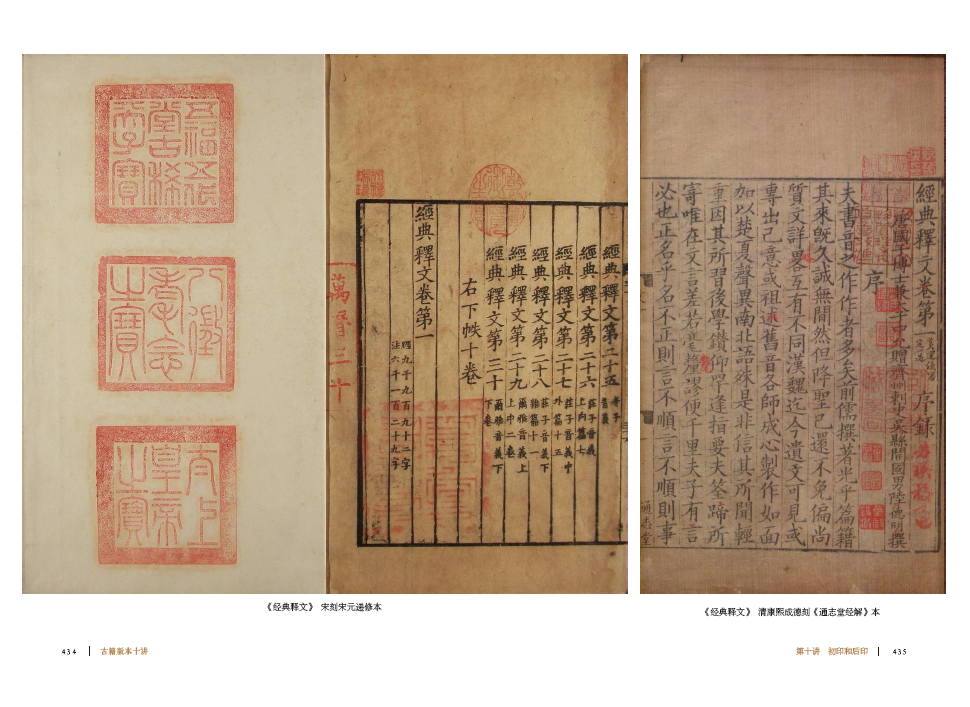 五福五代
堂古稀
天子寶
八徵
耄念
之寶
太上
皇帝
之寶
經典釋文第二十五 老子音義
經典釋文第二十六 莊子音義上內篇七
經典釋文第二十七 莊子音義中外篇十五
經典釋文第二十八 莊子音義下雜篇十一
經典釋文第二十九 爾雅音義上上中二卷
經典釋文第三十 爾雅音義下下卷
右下帙十卷
經典釋文卷第一
經九千九百九十二字
注六千一百二十九字
《经典释文》 宋刻宋元递修本
經典釋文卷第一 序錄
唐國子博士兼太子中允贈齊州刺史吳縣開國男陸德明撰
序
夫書音之作作者多矣前儒撰著光乎篇籍
其來旣久誠無閒然但降聖已還不免偏尚
質文詳畧互有不同漢魏迄今遺文可見或
專出己意或祖述舊音各師成心製作如面
加以楚夏聲異南北語殊是非信其所聞輕
重因其所習後學鑽仰罕逢指要夫筌蹄所
寄唯在文言差若毫釐謬便千里夫子有言
必也正名乎名不正則言不順言不順則事
通志堂
《经典释文》 清康熙成德刻《通志堂经解》本
434 古籍版本十讲
第十讲 初印和后印 435